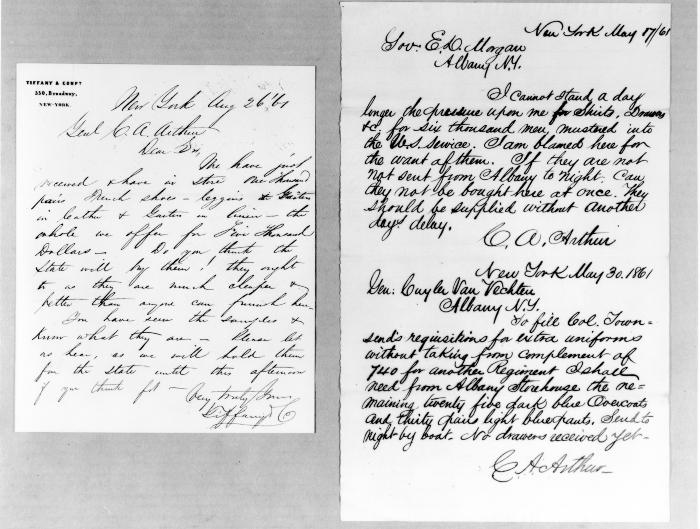 TIFFANY & COMPY
550, Broadway,
NEW-YORK.
New York Aug 26 '61
Genl C. A. Arthur
Dear Sir,
We have just
received & have in store One Thousand
pairs French shoes – leggins & Gaiters
in leather & Gaiters in linen – the
whole we offer for Five Thousand
Dollars – Do you think the
State will buy them? they ought
to as they are much cheaper &
better than anyone can furnish here –
You have seen the samples &
know what they are – Please let
us hear, as we will hold them
for the state until this afternoon
if you think fit –
Very truly Yours
Tiffany & Co
New York May 17/61
Gov. E. D. Morgan
Albany N.Y.
I cannot stand a day
longer the pressure upon me for Shirts, Drawers
&c. for six thousand men, mustered into
the U.S. Service. I am blamed here for
the want of them. If they are not
not sent from Albany to night. Can
they not be bought here at once. They
should be supplied without another
days delay.
C. A. Arthur
New York May 30. 1861
Gen: Cuyler Van Vechten
Albany N.Y.
To fill Col. Town=
send's requisitions for extra uniforms
without taking from complement of
740 for another Regiment I shall
need from Albany Storehouse the re=
maining twenty five dark blue Overcoats
and thirty pairs light blue pants. Send to
night by boat. No drawers received yet –
C. A. Arthur